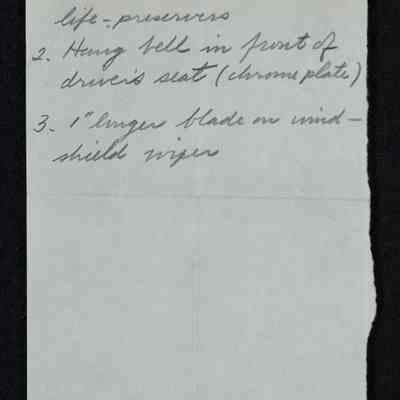 life-preservers
2. Hang bell in front of
driver's seat (chrome plate)
3. 1" longer blade on wind-
shield wiper